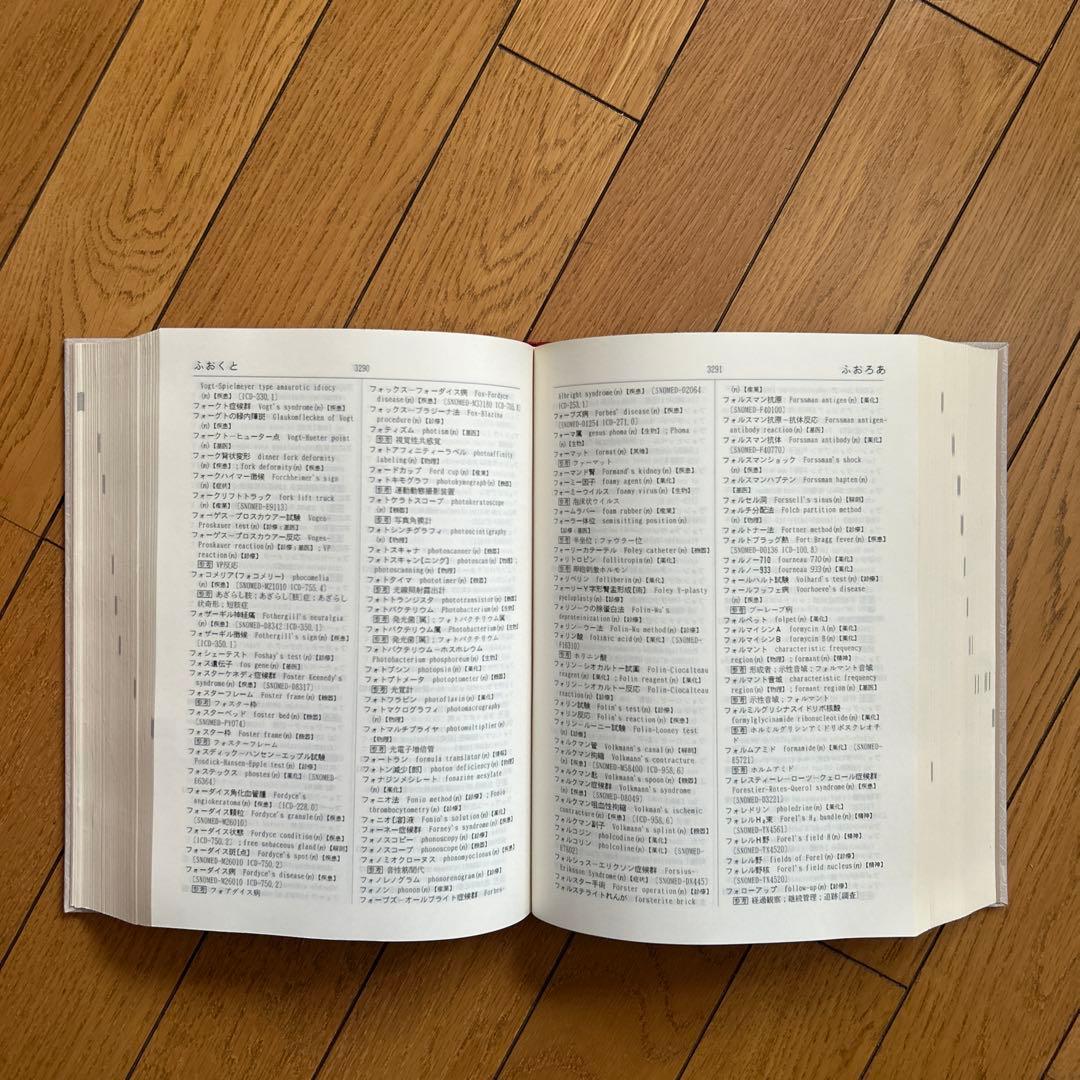 ふおくと
3290
Vogt-Spielmeyer type amaurotic idiocy
(n)【疾患】 [ICD-330,1]
フォークト症候群 Vogt's syndrome(n)【疾患】
フォークトの緑内障斑 Glaukomflecken of Vogt
(n)【疾患】
フォークト－ヒューター点 Vogt-Hueter point
(n)【基医】
フォーク背状変形 dinner fork deformity
(n)【疾患】; fork deformity(n)【疾患】
フォークハイマー徴候 Forchheimer's sign
(n)【症状】
フォークリフトトラック fork lift truck
(n)【産業】 [SNOMED-E9113]
フォーゲス－プロスカウアー試験 Voges-
Proskauer test(n)【診療;基医】
フォーゲス－プロスカウアー反応 Voges-
Proskauer reaction(n)【診療;基医】; VP
reaction(n)【診療】
参考 VP反応
フォコメリア[フォコメリー] phocomelia
(n)【疾患】 [SNOMED-M21010 ICD-755,4]
参考 あざらし肢;あざらし[肢]症;あざらし
状奇形;短肢症
フォザーギル神経痛 Fothergill's neuralgia
(n)【疾患】 [SNOMED-08342 ICD-350,1]
フォザーギル徴候 Fothergill's sign(n)【疾患】
[ICD-350,1]
フォシェーテスト Foshay's test(n)【診療】
フォス遺伝子 fos gene(n)【基医】
フォスターケネディ症候群 Foster Kennedy's
syndrome(n)【疾患】 [SNOMED-D8317]
フォスターフレーム Foster frame(n)【機器】
参考 フォスター枠
フォスターベッド Foster bed(n)【機器】
[SNOMED-PY074]
フォスター枠 Foster frame(n)【機器】
参考 フォスターフレーム
フォスディック－ハンセン－エップル試験
Fosdick-Hansen-Epple test(n)【診療】
フォステックス phostex(n)【薬化】 [SNOMED-
E6364]
フォーダイス角化血管腫 Fordyce's
angiokeratoma(n)【疾患】 [ICD-228,0]
フォーダイス顆粒 Fordyce's granule(n)【疾患】
[SNOMED-M26010]
フォーダイス状態 Fordyce condition(n)【疾患】
[ICD-750,2]; free sebaceous gland(n)【解剖】
フォーダイス斑[点] Fordyce's spot(n)【疾患】
[SNOMED-M26010 ICD-750,2]
フォーダイス病 Fordyce's disease(n)【疾患】
[SNOMED-M26010 ICD-750,2]
参考 フォアダイス病
フォックス－フォーダイス病 Fox-Fordyce
disease(n)【疾患】 [SNOMED-M33180 ICD-705,8]
フォックス－ブラジーナ法 Fox-Blazina
procedure(n)【診療】
フォティズム photism(n)【基医】
参考 視覚性共感覚
フォトアフィニティーラベル photoaffinity
labeling(n)【物理】
フォードカップ Ford cup(n)【産業】
フォトキモグラフ photokymograph(n)【機器】
参考 運動動態撮影装置
フォトケラトスコープ photokeratoscope
(n)【機器】
参考 写真角膜計
フォトシンチグラフィ photoscintigraphy
(n)【物理】
フォトスキャナ photoscanner(n)【機器】
フォトスキャン[ニング] photoscan(n)【物理】
photoscanning(n)【物理】
フォトタイマ phototimer(n)【機器】
参考 光線照射露出計
フォトトランジスタ phototransistor(n)【機器】
フォトバクテリウム Photobacterium(n)【生物】
参考 発光菌[属];フォトバクテリウム属
フォトバクテリウム属 Photobacterium(n)【生物】
参考 発光菌[属];フォトバクテリウム
フォトバクテリウム－ホスホレウム
Photobacterium phosphoreum(n)【生物】
フォトプシン photopsin(n)【薬化】
フォトプトメータ photoptometer(n)【機器】
参考 光覚計
フォトフラビン photoflavin(n)【薬化】
フォトマクログラフィ photomacrography
(n)【物理】
フォトマルチプライヤー photomultiplier(n)
【物理】
参考 光電子増倍管
フォートラン formula translator(n)【情報】
フォトン減少[的] photon deficiency(n)【物理】
フォナジンメシレート fonazine mesylate
(n)【薬化】
フォニオ法 Fonio method(n)【診療】; Fonio
thrombocytometry(n)【診療】
フォニオ[溶]液 Fonio's solution(n)【薬化】
フォーネー症候群 Forney's syndrome(n)【疾患】
フォノスコピー phonoscopy(n)【診療】
フォノスコープ phonoscope(n)【機器】
フォノミオクローヌス phonomyoclonus(n)【疾患】
参考 音性筋間代
フォノレノグラム phonorenogram(n)【診療】
フォノン phonon(n)【産業】
フォーブズ－オールブライト症候群 Forbes-
3291
ふおろあ
Albright syndrome(n)【疾患】 [SNOMED-02064
ICD-253,1]
フォーブズ病 Forbes' disease(n)【疾患】
[SNOMED-01254 ICD-271,0]
フォーマ属 genus phoma(n)【生物】; Phoma
(n)【生物】
フォーマット format(n)【其情】
参考 ファーマット
フォーマンド腎 Formand's kidney(n)【疾患】
フォーミー因子 foamy agent(n)【薬化】
フォーミーウイルス foamy virus(n)【生物】
参考 泡沫状ウイルス
フォームラバー foam rubber(n)【産業】
フォーラー体位 semisitting position(n)
【診療】
参考 半坐位;ファウラー位
フォーリーカテーテル Foley catheter(n)【機器】
フォリトロピン follitropin(n)【薬化】
参考 卵胞刺激ホルモン
フォリベリン folliberin(n)【薬化】
フォーリーY字形腎盂形成[術] Foley Y-plasty
pyeloplasty(n)【診療】
フォリン－ウの除蛋白法 Folin-Wu's
deproteinization(n)【診療】
フォリン－ウー法 Folin-Wu method(n)【診療】
フォリン酸 folinic acid(n)【薬化】 [SNOMED-
F16310]
参考 ホリニン酸
フォリン－シオカルトー試薬 Folin-Ciocalteu
reagent(n)【薬化】; Folin reagent(n)【薬化】
フォリン－シオカルトー反応 Folin-Ciocalteu
reaction(n)【診療】
フォリン試験 Folin's test(n)【診療】
フォリン反応 Folin's reaction(n)【診療】
フォリン－ルーニー試験 Folin-Looney test
(n)【診療】
フォルクマン管 Volkmann's canal(n)【解剖】
フォルクマン拘縮 Volkmann's contracture
(n)【疾患】 [SNOMED-M58400 ICD-958,6]
フォルクマン匙 Volkmann's spoon(n)【機器】
フォルクマン症候群 Volkmann's syndrome
(n)【疾患】 [SNOMED-D8049]
フォルクマン阻血性拘縮 Volkmann's ischemic
contracture(n)【疾患】 [ICD-958,6]
フォルクマン副子 Volkmann's splint(n)【機器】
フォルコジン pholcodine(n)【薬化】
フォルコリン pholcoline(n)【薬化】 [SNOMED-
E7602]
フォルシュス－エリクソン症候群 Forsius-
Eriksson Syndrome(n)【症状】 [SNOMED-DX445]
フォルスター手術 Förster operation(n)【診療】
フォルステライトれんが forsterite brick
(n)【産業】
フォルスマン抗原 Forssman antigen(n)【薬化】
[SNOMED-F40100]
フォルスマン抗原－抗体反応 Forssman antigen-
antibody reaction(n)【基医】
フォルスマン抗体 Forssman antibody(n)【薬化】
[SNOMED-F40770]
フォルスマンショック Forssman's shock
(n)【疾患】
フォルスマンハプテン Forssman hapten(n)
【基医】
フォルセル洞 Forssell's sinus(n)【解剖】
フォルチ分配法 Folch partition method
(n)【物理】
フォルトナー法 Fortner method(n)【診療】
フォルトブラッグ熱 Fort Bragg fever(n)【疾患】
[SNOMED-D0136 ICD-100,8]
フォルノー710 fourneau 710(n)【薬化】
フォルノー933 fourneau 933(n)【薬化】
フォールハルト試験 Volhard's test(n)【診療】
フォールフッフェ病 Voorhoeve's disease
(n)【疾患】
参考 ブーレーブ病
フォルペット folpet(n)【薬化】
フォルマイシンA formycin A(n)【薬化】
フォルマイシンB formycin B(n)【薬化】
フォルマント characteristic frequency
region(n)【物理】; formant(n)【精神】
参考 形成者;示性音域;フォルマント音域
フォルマント音域 characteristic frequency
region(n)【物理】; formant region(n)【基医】
参考 示性音域;フォルマント
フォルミルグリシナスイドリボ核酸
formylglycinamide ribonucleotide(n)【薬化】
参考 ホルミルグリシンアミドリボヌクレオチ
ド
フォルムアミド formamide(n)【薬化】 [SNOMED-
E5721]
参考 ホルムアミド
フォレスティーレ－ローツ－クェロール症候群
Forestier-Rotes-Querol syndrome(n)【疾患】
[SNOMED-D3221]
フォレドリン pholedrine(n)【薬化】
フォレルH₂束 Forel's H₂ bundle(n)【解剖】
[SNOMED-TX4561]
フォレルH野 Forel's field H(n)【精神】
[SNOMED-TX4520]
フォレル野 fields of Forel(n)【診療】
フォレル野核 Forel's field nucleus(n)【精神】
[SNOMED-TX4520]
フォローアップ follow-up(n)【診療】
参考 経過観察;継続管理;追跡[調査]